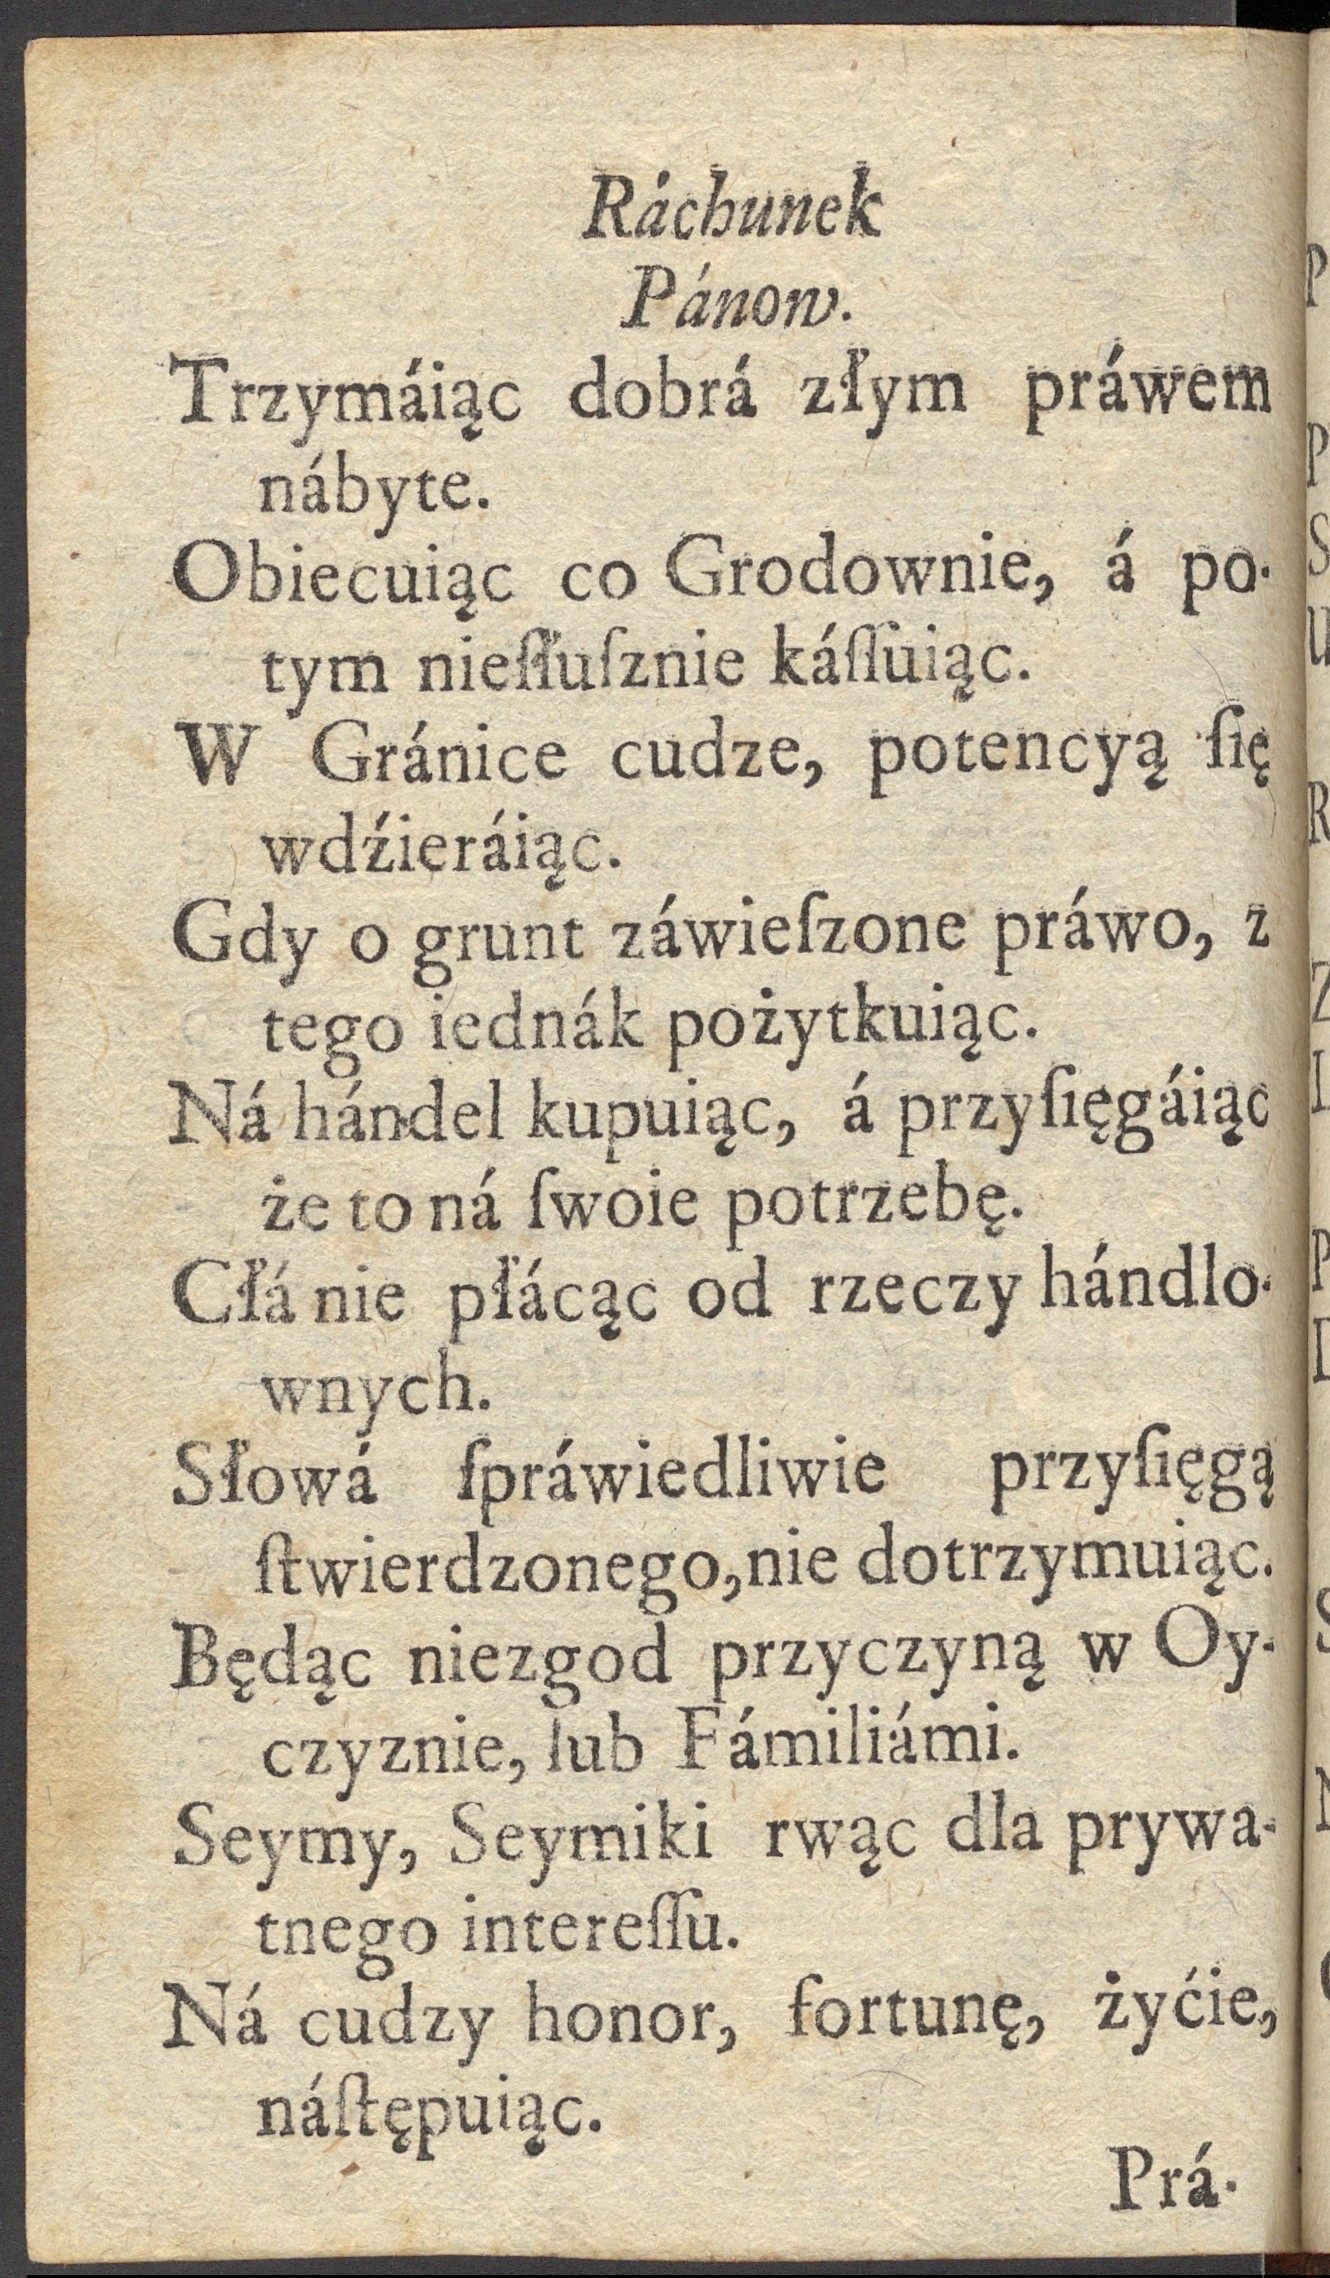 Ráchunek
Pánow.
Trzymáiąc dobrá złym práwem
nábyte.
Obiecuiąc co Grodownie, á po-
tym nieſłuſznie káſſuiąc.
W Gránice cudze, potencyą ſię
wdźieráiąc.
Gdy o grunt záwieſzone práwo, z
tego iednák pożytkuiąc.
Ná hándel kupuiąc, á przyſięgáiąc
że to ná ſwoie potrzebę.
Cłá nie płácąc od rzeczy hándlo-
wnych.
Słowá ſpráwiedliwie przyſięgą
ſtwierdzonego, nie dotrzymuiąc.
Będąc niezgod przyczyną w Oy-
czyznie, lub Fámiliámi.
Seymy, Seymiki rwąc dla prywa-
tnego intereſſu.
Ná cudzy honor, fortunę, żyćie,
náſtępuiąc.
Prá-